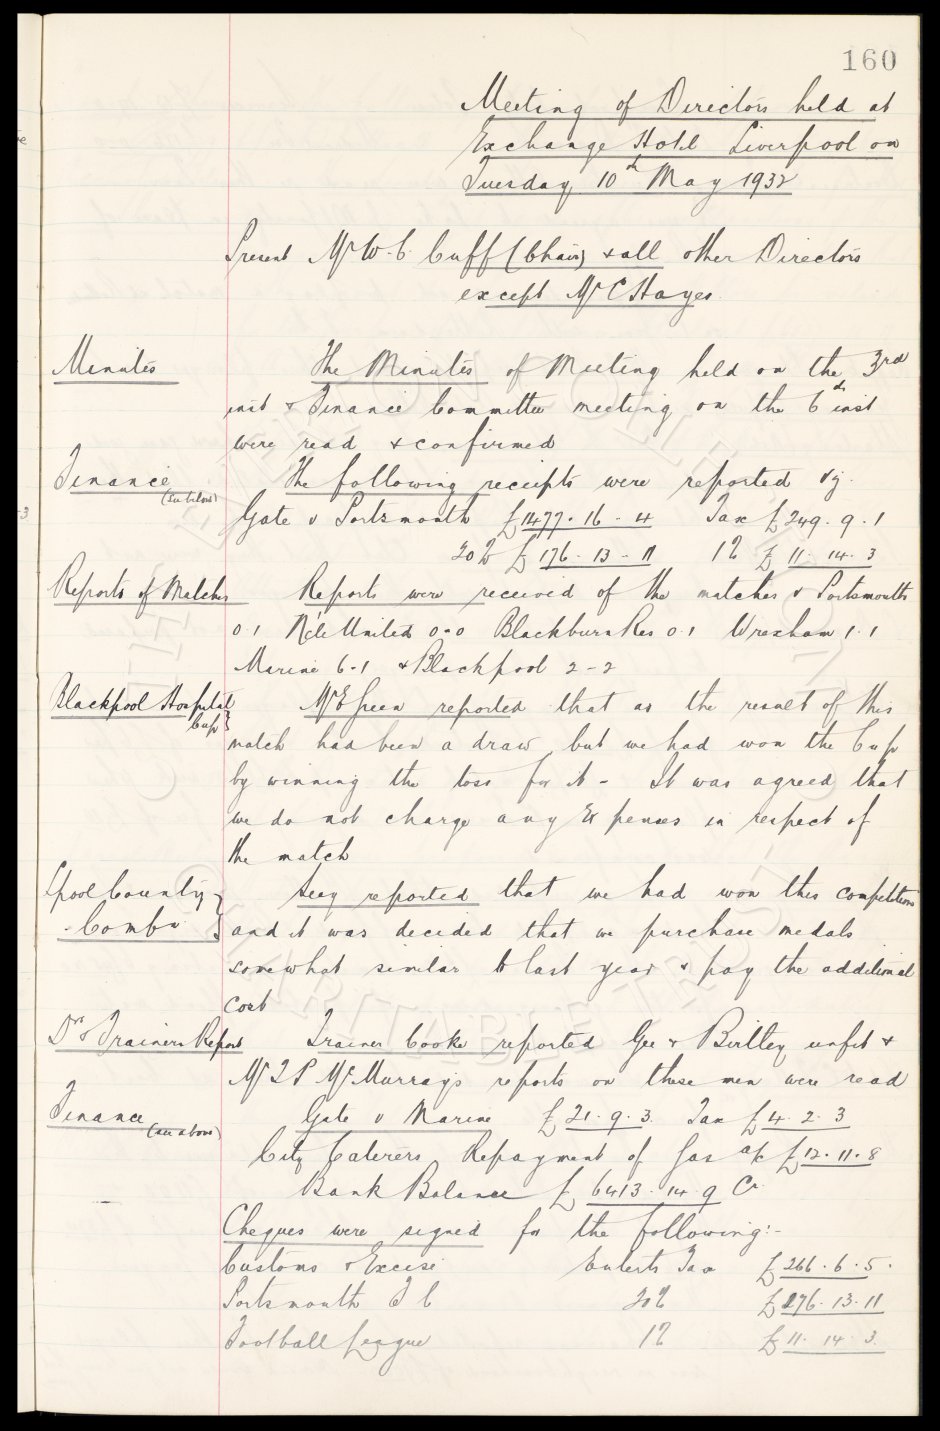 160
Meeting of Directors held at
Exchange Hotel Liverpool on
Tuesday 10th May 1932
Present Mr W. C. Cuff (Chair) & all other Directors
except Mr C Hayes.
Minutes The Minutes of Meeting held on the 3rd
inst & Finance Committee meeting on the 6th inst
were read & confirmed
Finance The following receipts were reported viz.
(see below)
Gate v Portsmouth £1477. 16. 4 Tax £249. 9. 1
20% £176. 13. 11 1% £11. 14. 3
Reports of Matches Reports were received of the matches v Portsmouth
0.1 N'cle United 0-0 Blackburn Res 0.1 Wrexham 1.1
Marine 6-1 & Blackpool 2-2
Blackpool Hospital Mr E Green reported that as the result of this
Cup
match had been a draw but we had won the Cup
by winning the toss for it - It was agreed that
we do not charge any Expenses in respect of
the match
L'pool County Secy reported that we had won this competition
Combn and it was decided that we purchase medals
somewhat similar to last year & pay the additional
cost
Dr & Trainers Report Trainer Cooke reported Gee & Birtley unfit &
Mr J P McMurray's reports on these men were read
Finance Gate v Marine £21. 9. 3. Tax £4. 2. 3
(see above)
City Caterers Repayment of Gas a/c £12. 11. 8
Bank Balance £6413. 14. 9 Cr.
Cheques were signed for the following:-
Customs & Excise Enterts Tax £266. 6. 5.
Portsmouth F C 20% £276. 13. 11
Football League 1% £11. 14. 3.